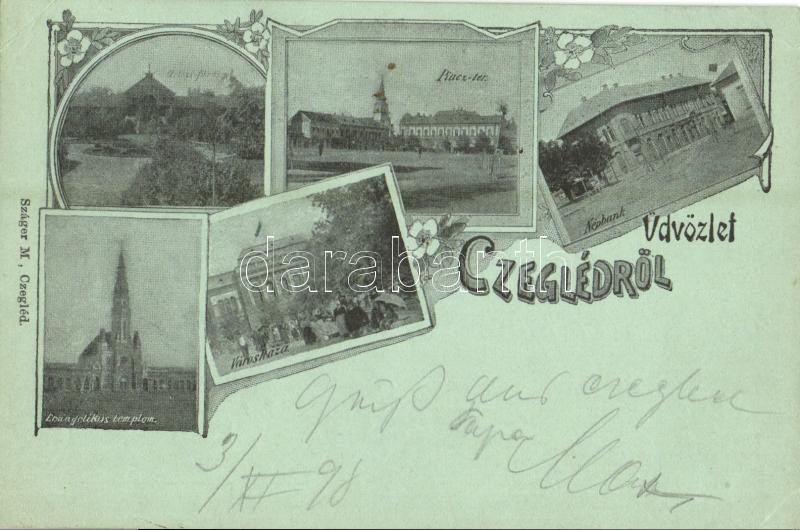 Piacz-tér.
Népbank
Üdvözlet
CZEGLÉDRŐL
Városháza
Evangelikus templom.
Száger M, Czegléd.
darabanth.com
Gruß aus Czegled
Papa
3/XI 98